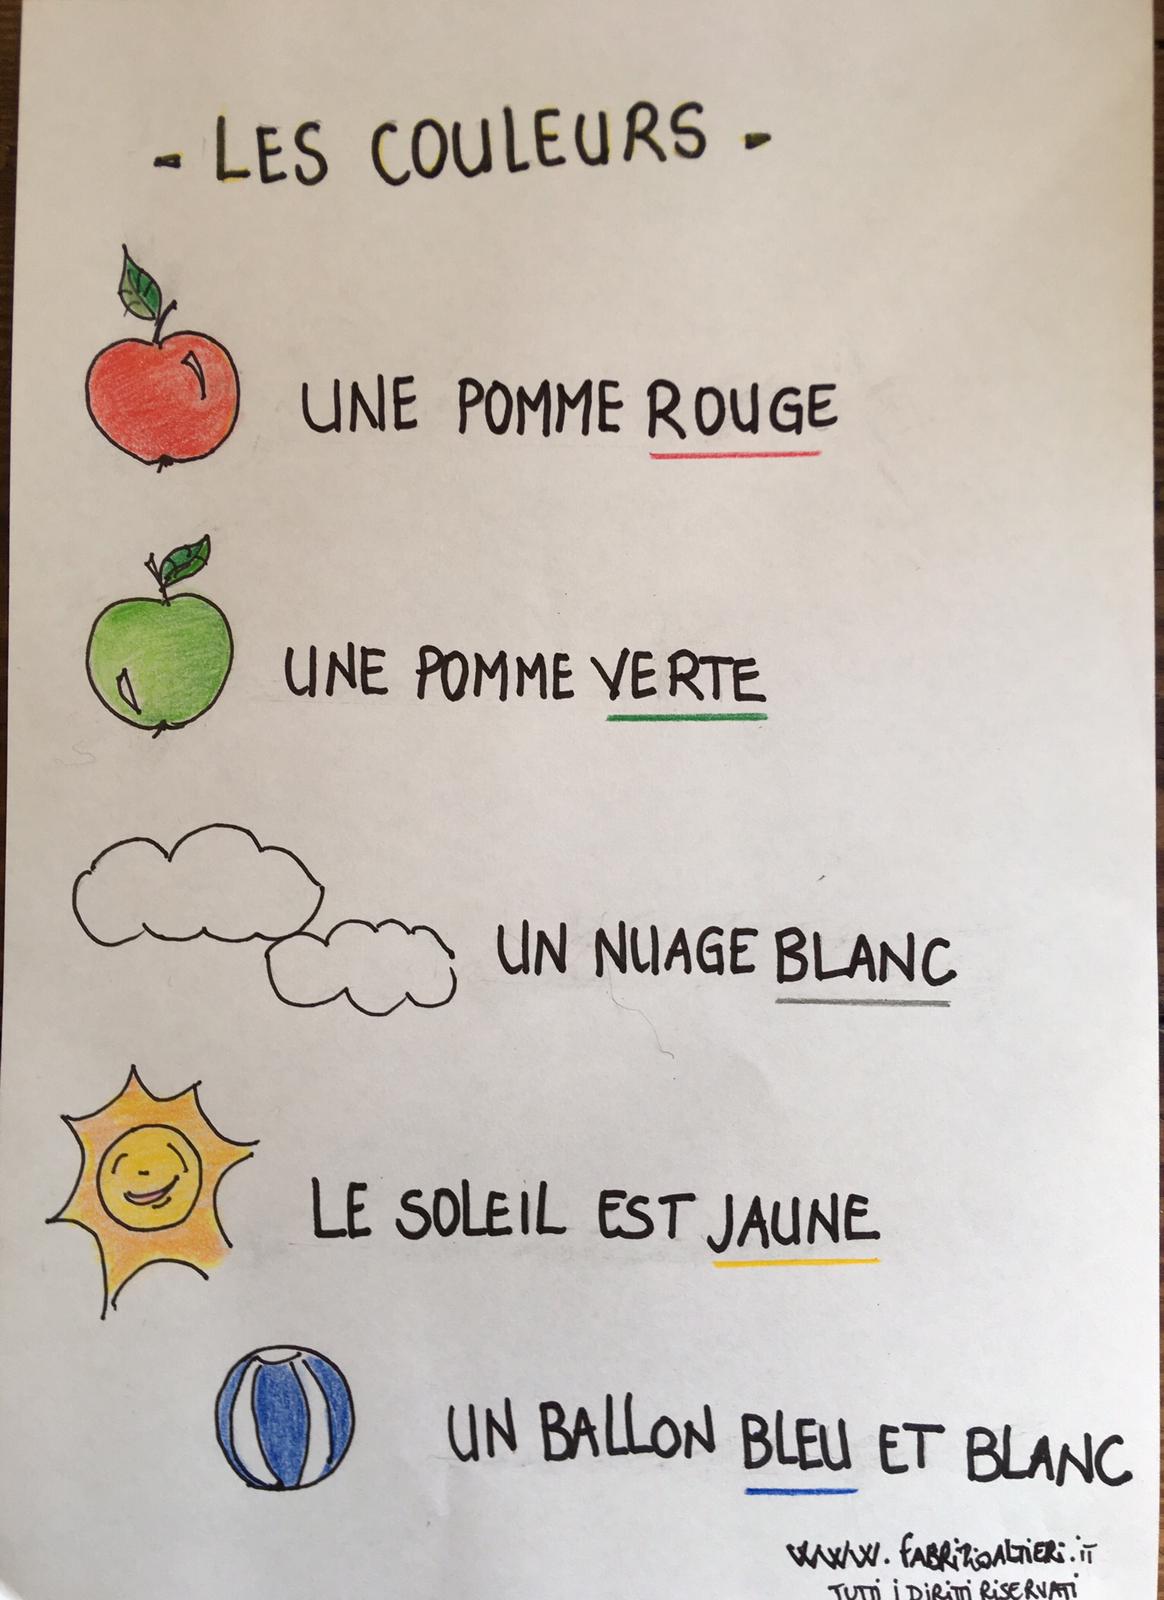 - LES COULEURS -
UNE POMME ROUGE
UNE POMME VERTE
UN NUAGE BLANC
LE SOLEIL EST JAUNE
UN BALLON BLEU ET BLANC
www.fabrizioaltieri.it
TUTTI i DiRiTTi RiSERVATi